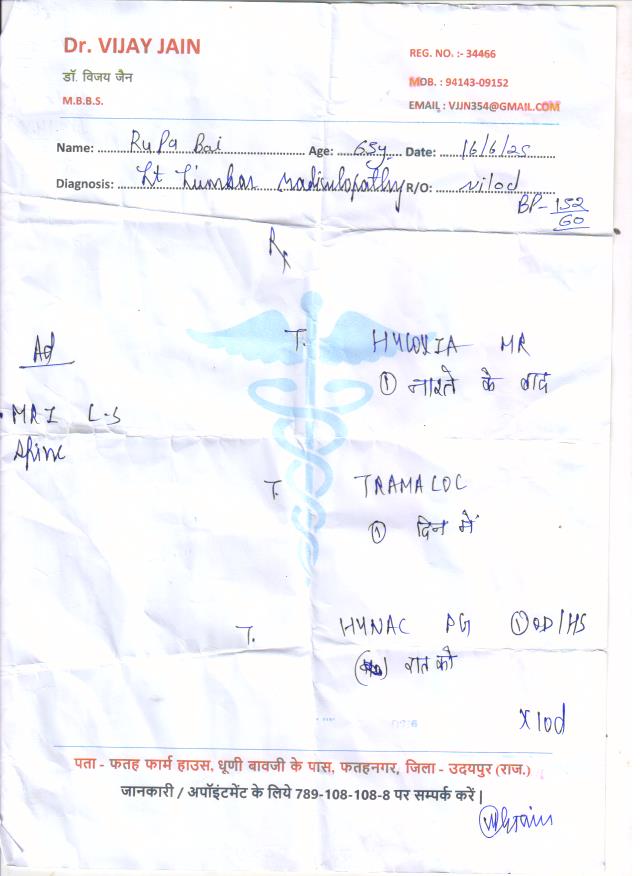 Dr. VIJAY JAIN
डॉ. विजय जैन
M.B.B.S.
REG. NO. :- 34466
MOB. : 94143-09152
EMAIL : VJJN354@GMAIL.COM
Name: Rupa Bai Age: 65y Date: 16/6/25
Diagnosis: Lt Lumbar radiculopathy R/O: vilod
BP- 152/60
Rx
Ad
MRI L-S
Spine
T. MR
① नाश्ते के बाद
T.
① दिन में
T. HYNAC PG ① OD/HS
रात को
x10d
पता - फतह फार्म हाउस, धूणी बावजी के पास, फतहनगर, जिला - उदयपुर (राज.)
जानकारी / अपॉइंटमेंट के लिये 789-108-108-8 पर सम्पर्क करें |